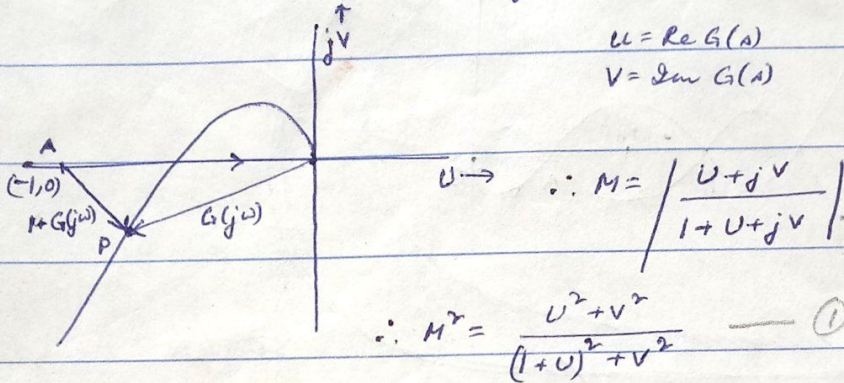 ↑
jV
u = Re G(s)
V = Im G(s)
A
(-1,0)
1+G(jω)
P
G(jω)
U→
∴ M = | U+jV / 1+U+jV |
∴ M² = U²+V² / (1+U)²+V² — ①